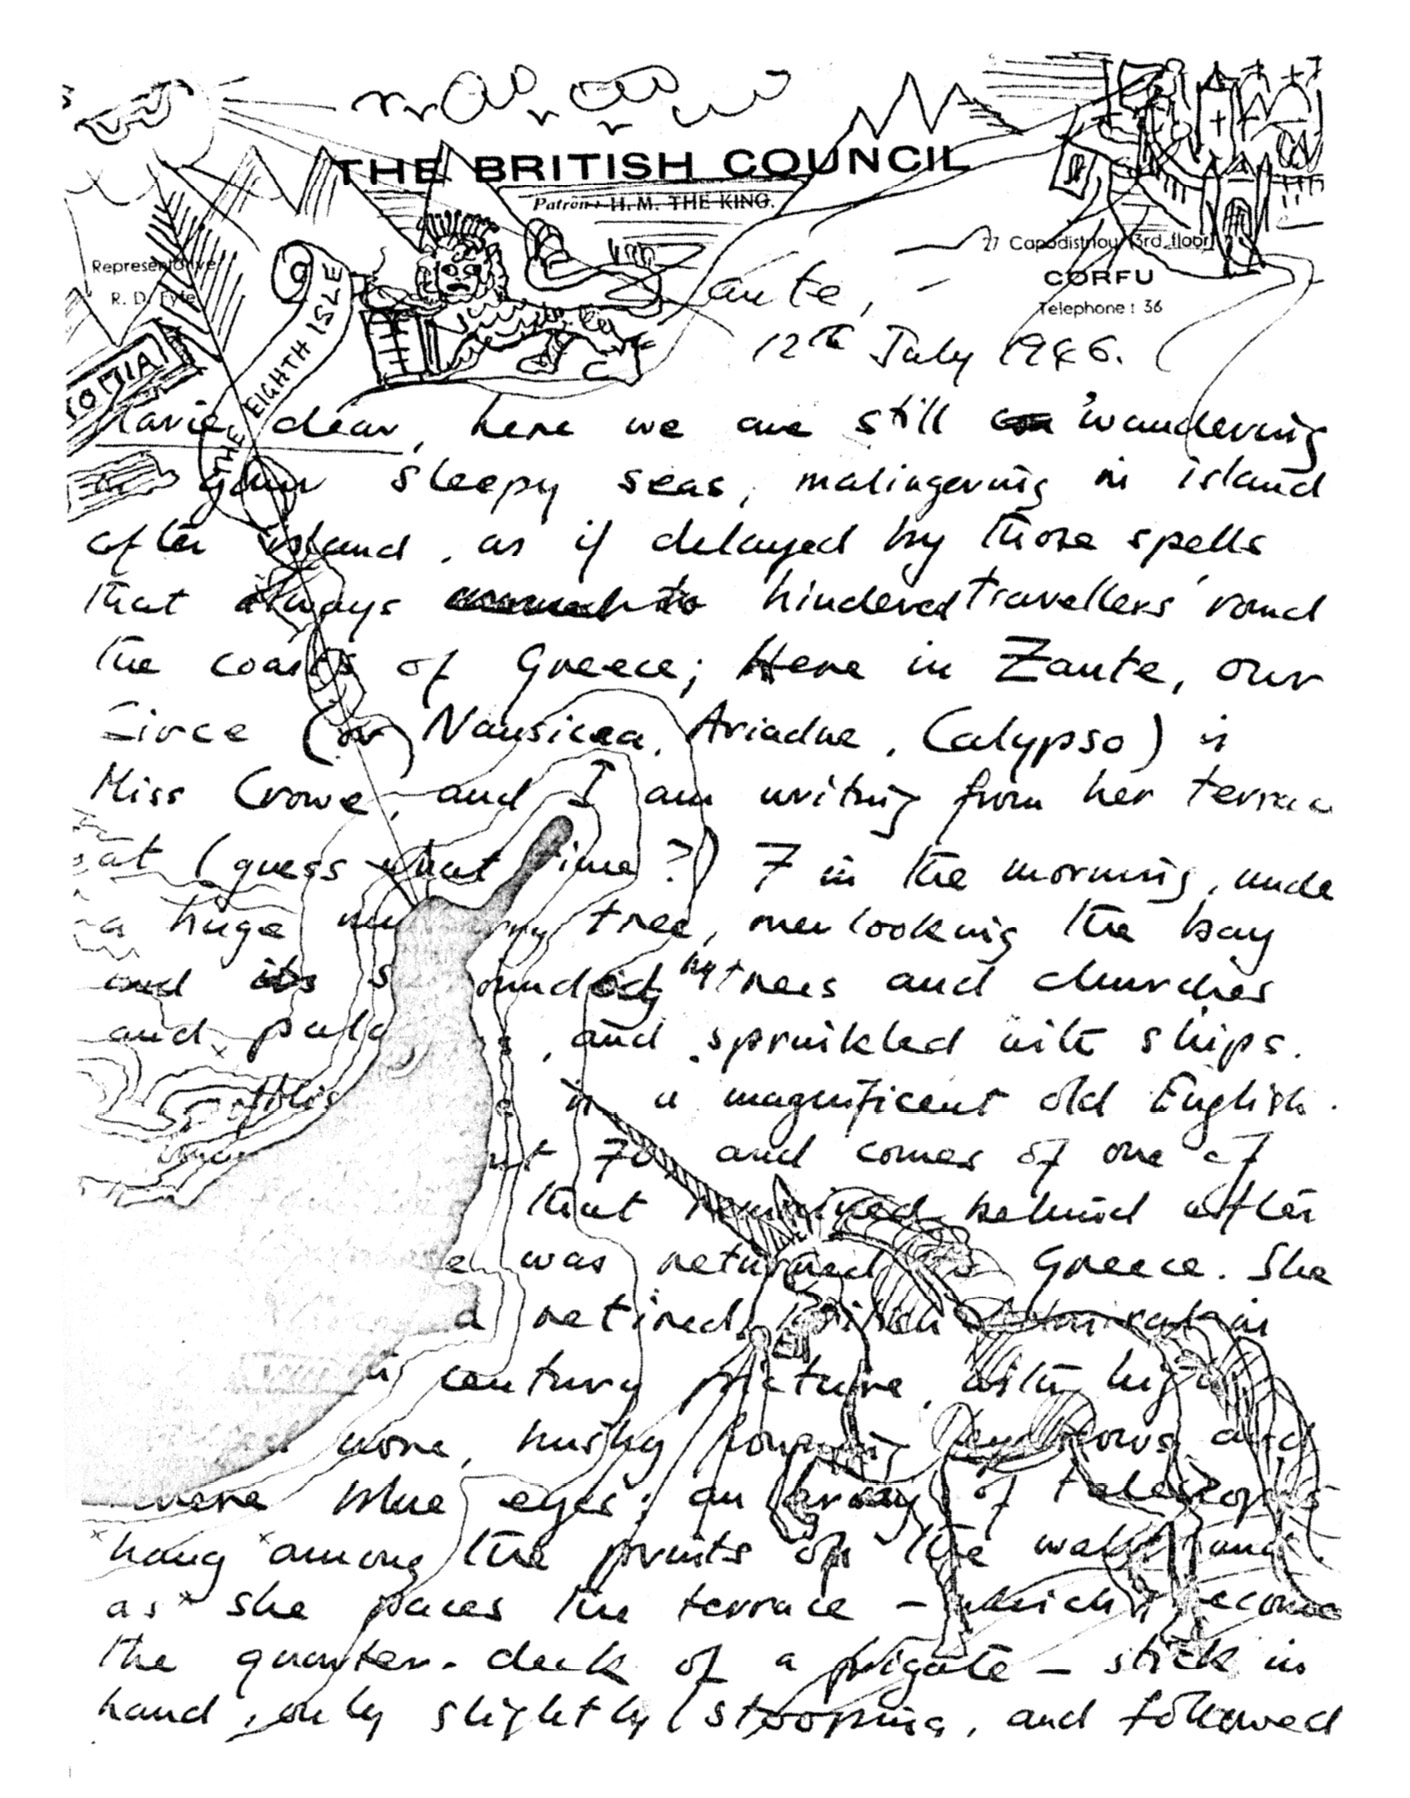 THE BRITISH COUNCIL
Patron: H.M. THE KING.
Representative
R. D. Fyfe
27 Capodistriou (3rd floor)
CORFU
Telephone: 36
THE EIGHTH ISLE
Zante, -
12th July 1946.
Marie dear, here we are still wandering
in your sleepy seas, malingering in island
after island, as if delayed by those spells
that always hindered travellers round
the coasts of Greece; Here in Zante, our
Circe (or Nausicaa, Ariadne, Calypso) is
Miss Crowe, and I am writing from her terrace
at (guess what time?) 7 in the morning, unde
a huge tree, overlooking the bay
and its by trees and churches
and , and sprinkled with ships.
is a magnificent old English
70, and comes of one of
that remained behind after
was returned to Greece. She
a retired British Admiral in
century picture, with high
nose, husky booming and
blue eyes; an array of telescopes
hang among the prints on the wall, and
as she paces the terrace - which become
the quarter-deck of a frigate - stick in
hand, only slightly stooping, and followed